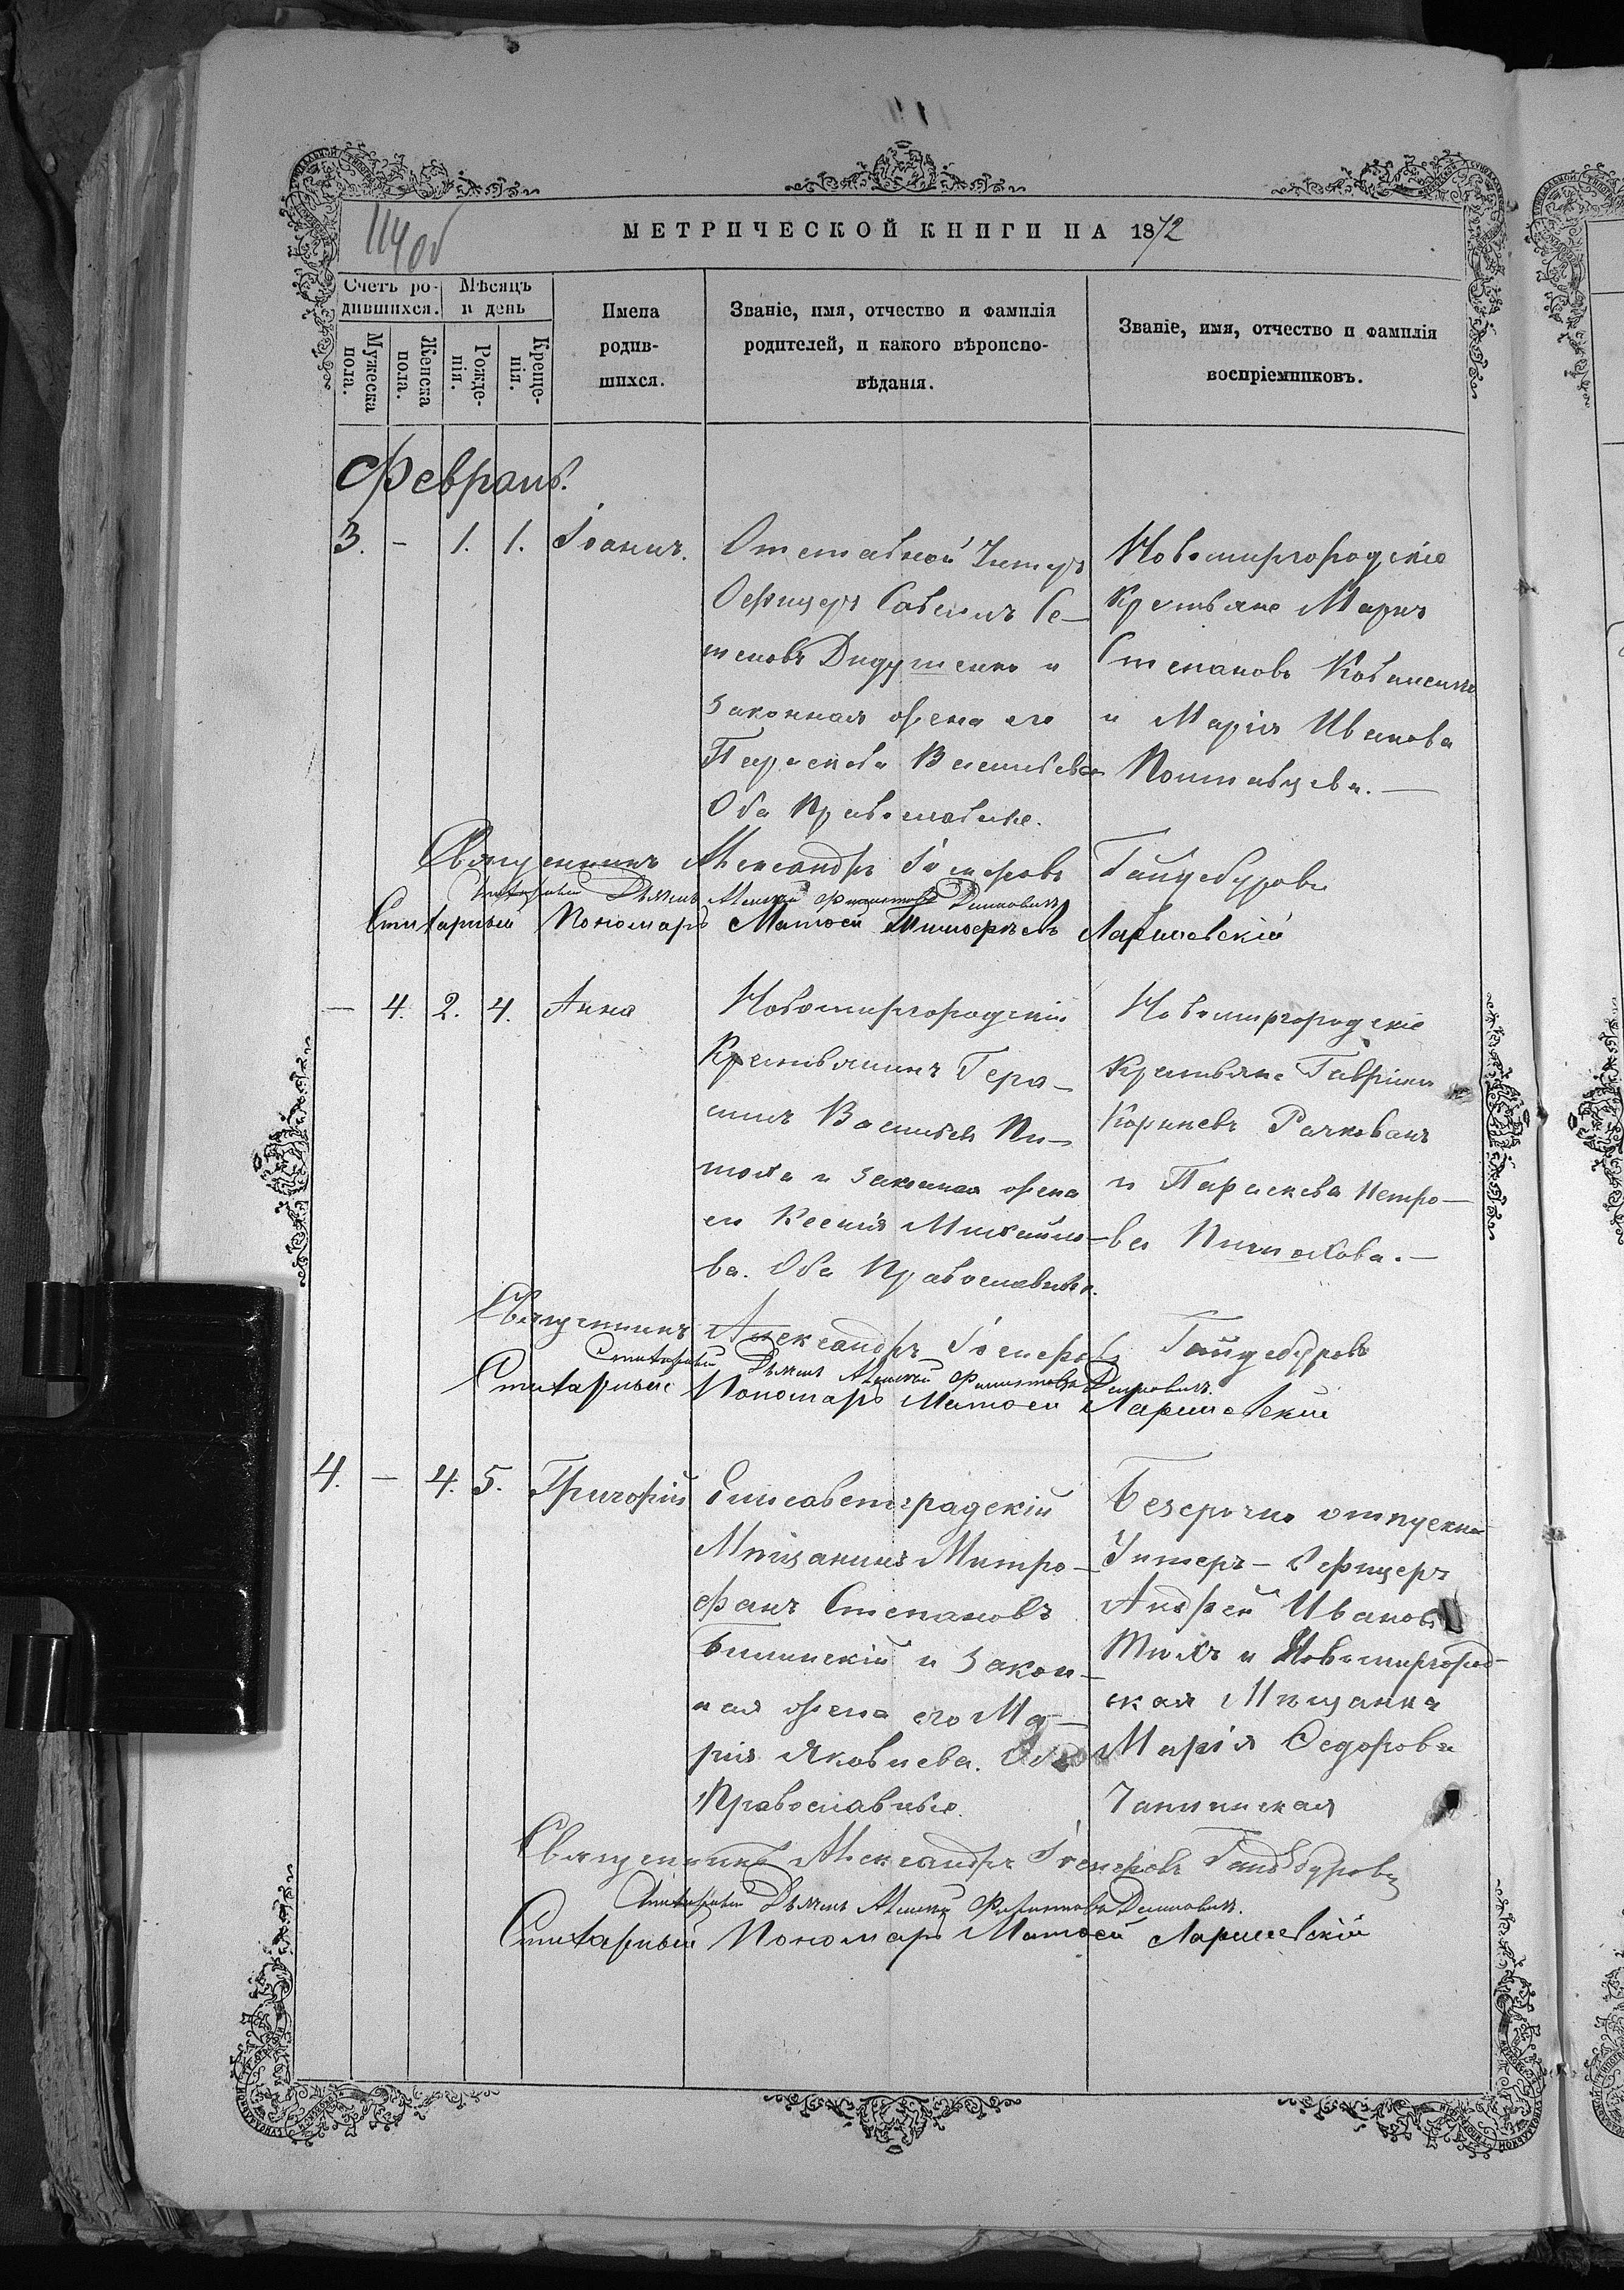 114 об
МЕТРИЧЕСКОЙ КНИГИ НА 1872
Счетъ ро-
дившихся.
Мѣсяцъ
и день
Мужеска
пола.
Женска
пола.
Рожде-
нія.
Креще-
нія.
Имена
родив-
шихся.
Званіе, имя, отчество и фамилія
родителей, и какого вѣроиспо-
вѣданія.
Званіе, имя, отчество и фамилія
воспріемниковъ.
Февраль.
3. - 1. 1. Іоаннъ.
Отставной Унтеръ
Офицеръ Савелій Се-
меновъ Дидушенко и
законная жена его
Параскева Васильева
Оба Православные.
Новомиргородскіе
Крестьяне Маркъ
Степановъ
и Марія Иванова
Полтавцева.—
Священникъ Александръ Іосифовъ Гайдебуровъ
Стихарный Дьячекъ Алексѣй Филиповъ Димовичъ
Стихарный Пономарь Матѳей Ларшевскій
— 4. 2. 4. Анна
Новомиргородскій
Крестьянинъ Гера-
симъ Васильевъ Пи-
и законная жена
его Ксенія Михайло-
ва. Оба Православные.
Новомиргородскіе
Крестьяне Гавріилъ
Корніевъ Рачкованъ
и Параскева Петро-
ва
Священникъ Александръ Іосифовъ Гайдебуровъ
Стихарный Дьячекъ Алексѣй Филиповъ Димовичъ.
Стихарный Пономарь Матѳей Ларшевскій
4. — 4. 5. Григорій
Елисаветградскій
Мѣщанинъ Митро-
фанъ Степановъ
Билинскій и закон-
ная жена его Ма-
рія Яковлева. Оба
Православные.
Безсрочно отпускной
Унтеръ-Офицеръ
Андрей Ивановъ
и Новомиргород-
ская Мѣщанка
Марія Ѳедорова
Чаплинская
Священникъ Александръ Іосифовъ Гайдебуровъ
Стихарный Дьячекъ Алексѣй Филиповъ Димовичъ.
Стихарный Пономарь Матѳей Ларшевскій